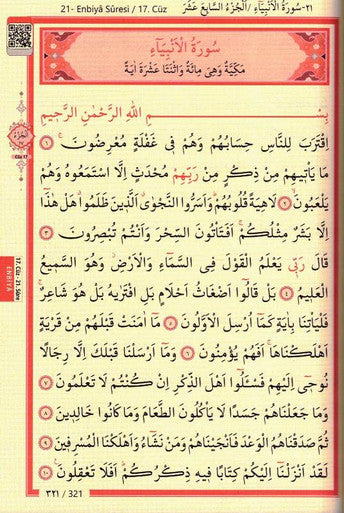 21- Enbiyâ Sûresi / 17. Cüz ٢١-سُورَةُ الْاَنْبِيَاءِ / اَلْجُزْءُ السَّابِعَ عَشَرَ
سُورَةُ الْاَنْبِيَاءِ
مَكِّيَّةٌ وَهِيَ مِائَةٌ وَاثْنَتَا عَشْرَةَ اٰيَةً
بِسْمِ اللهِ الرَّحْمٰنِ الرَّحِيمِ
اِقْتَرَبَ لِلنَّاسِ حِسَابُهُمْ وَهُمْ فِي غَفْلَةٍ مُعْرِضُونَ ۚ ١
مَا يَأْتِيهِمْ مِنْ ذِكْرٍ مِنْ رَبِّهِمْ مُحْدَثٍ اِلَّا اسْتَمَعُوهُ وَهُمْ
يَلْعَبُونَ ۙ ٢ لَاهِيَةً قُلُوبُهُمْ وَاَسَرُّوا النَّجْوَى الَّذِينَ ظَلَمُوا هَلْ هٰذَا
اِلَّا بَشَرٌ مِثْلُكُمْ ۚ اَفَتَأْتُونَ السِّحْرَ وَاَنْتُمْ تُبْصِرُونَ ٣
قَالَ رَبِّي يَعْلَمُ الْقَوْلَ فِي السَّمَاءِ وَالْاَرْضِ وَهُوَ السَّمِيعُ
الْعَلِيمُ ٤ بَلْ قَالُوا اَضْغَاثُ اَحْلَامٍ بَلِ افْتَرٰيهُ بَلْ هُوَ شَاعِرٌ ۚ
فَلْيَأْتِنَا بِاٰيَةٍ كَمَا اُرْسِلَ الْاَوَّلُونَ ٥ مَا اٰمَنَتْ قَبْلَهُمْ مِنْ قَرْيَةٍ
اَهْلَكْنَاهَا ۚ اَفَهُمْ يُؤْمِنُونَ ٦ وَمَا اَرْسَلْنَا قَبْلَكَ اِلَّا رِجَالًا
نُوحِي اِلَيْهِمْ فَسْـَٔلُوا اَهْلَ الذِّكْرِ اِنْ كُنْتُمْ لَا تَعْلَمُونَ ٧
وَمَا جَعَلْنَاهُمْ جَسَدًا لَا يَأْكُلُونَ الطَّعَامَ وَمَا كَانُوا خَالِدِينَ ٨
ثُمَّ صَدَقْنَاهُمُ الْوَعْدَ فَاَنْجَيْنَاهُمْ وَمَنْ نَشَاءُ وَاَهْلَكْنَا الْمُسْرِفِينَ ٩
لَقَدْ اَنْزَلْنَا اِلَيْكُمْ كِتَابًا فِيهِ ذِكْرُكُمْ ۚ اَفَلَا تَعْقِلُونَ ١٠
٣٢١ / 321
Cüz 17
17. Cüz - 21. Sûre
ENBİYÂ